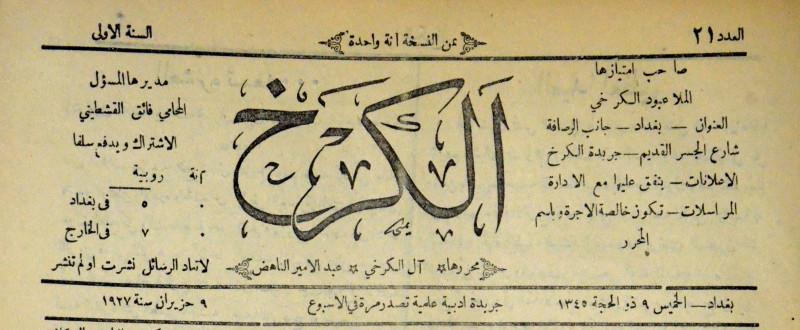 العدد ٢١
ثمن النسخة آنة واحدة
السنة الاولى
صاحب امتيازها
الملا عبود الكرخي
العنوان — بغداد — جانب الرصافة
شارع الجسر القديم — جريدة الكرخ
الاعلانات — يتفق عليها مع الادارة
المراسلات — تكون خالصة الاجرة وباسم
المحرر
الكرخ
محررها * آل الكرخي * عبد الامير الناهض
مديرها المسؤل
المحامي فائق القشطيني
الاشتراك ويدفع سلفا
آنة روبية
٠ ٥ في بغداد
٠ ٧ في الخارج
لا تعاد الرسائل نشرت او لم تنشر
بغداد — الخميس ٩ ذو الحجة ١٣٤٥
جريدة ادبية علمية تصدر مرة في الاسبوع
٩ حزيران سنة ١٩٢٧